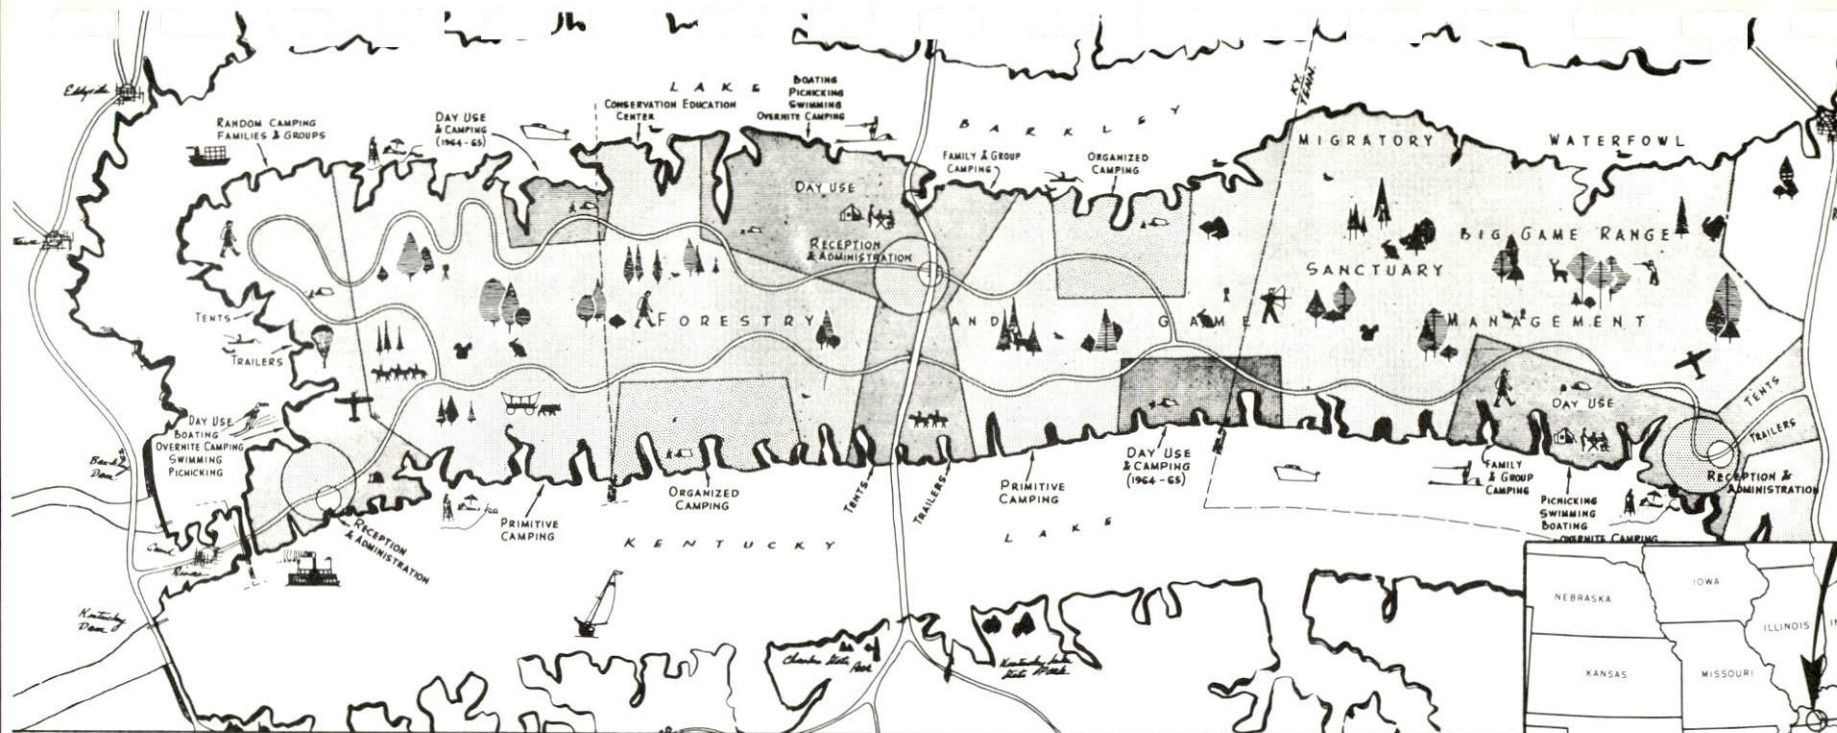 Eddyville
RANDOM CAMPING
FAMILIES & GROUPS
DAY USE
& CAMPING
(1964-65)
LAKE
CONSERVATION EDUCATION
CENTER
BOATING
PICNICKING
SWIMMING
OVERNITE CAMPING
BARKLEY
FAMILY & GROUP
CAMPING
ORGANIZED
CAMPING
KY.
TENN.
MIGRATORY WATERFOWL
DAY USE
RECEPTION
& ADMINISTRATION
BIG GAME RANGE
SANCTUARY
TENTS
TRAILERS
FORESTRY AND GAME MANAGEMENT
DAY USE
BOATING
OVERNITE CAMPING
SWIMMING
PICNICKING
Dam
Canal
RECEPTION
& ADMINISTRATION
PRIMITIVE
CAMPING
ORGANIZED
CAMPING
TENTS
TRAILERS
PRIMITIVE
CAMPING
DAY USE
& CAMPING
(1964-65)
DAY USE
TENTS
TRAILERS
FAMILY
& GROUP
CAMPING
PICNICKING
SWIMMING
BOATING
OVERNITE CAMPING
RECEPTION &
ADMINISTRATION
KENTUCKY LAKE
Kentucky
Dam
Kentucky Lake
State Park
NEBRASKA
IOWA
ILLINOIS
KANSAS
MISSOURI